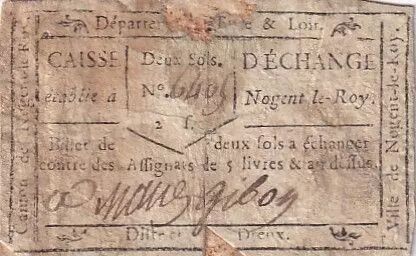 Départem d'Eure & Loir.
CAISSE Deux Sols. D'ÉCHANGE
établie à N°. Nogent-le-Roy.
2 s.
Billet de deux sols à échanger
contre des Assignats de 5 livres & au-dessus.
District Dreux.
Canton de Nogent-le-Roy.
Ville de Nogent-le-Roy.